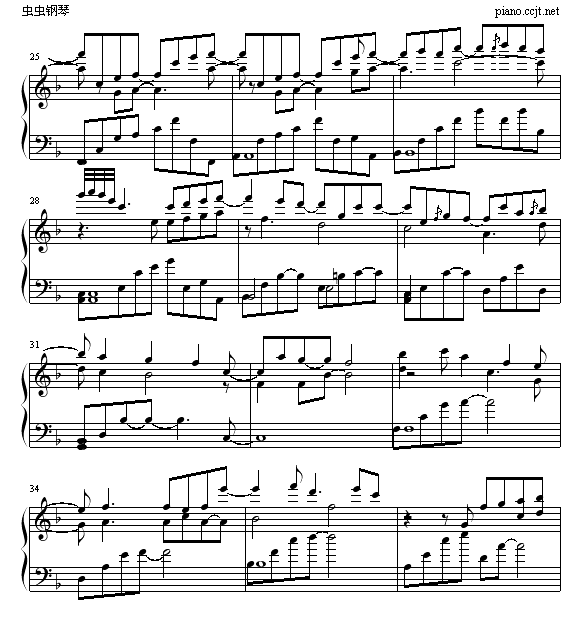 虫虫钢琴 piano.ccjt.net
25
28
31
34